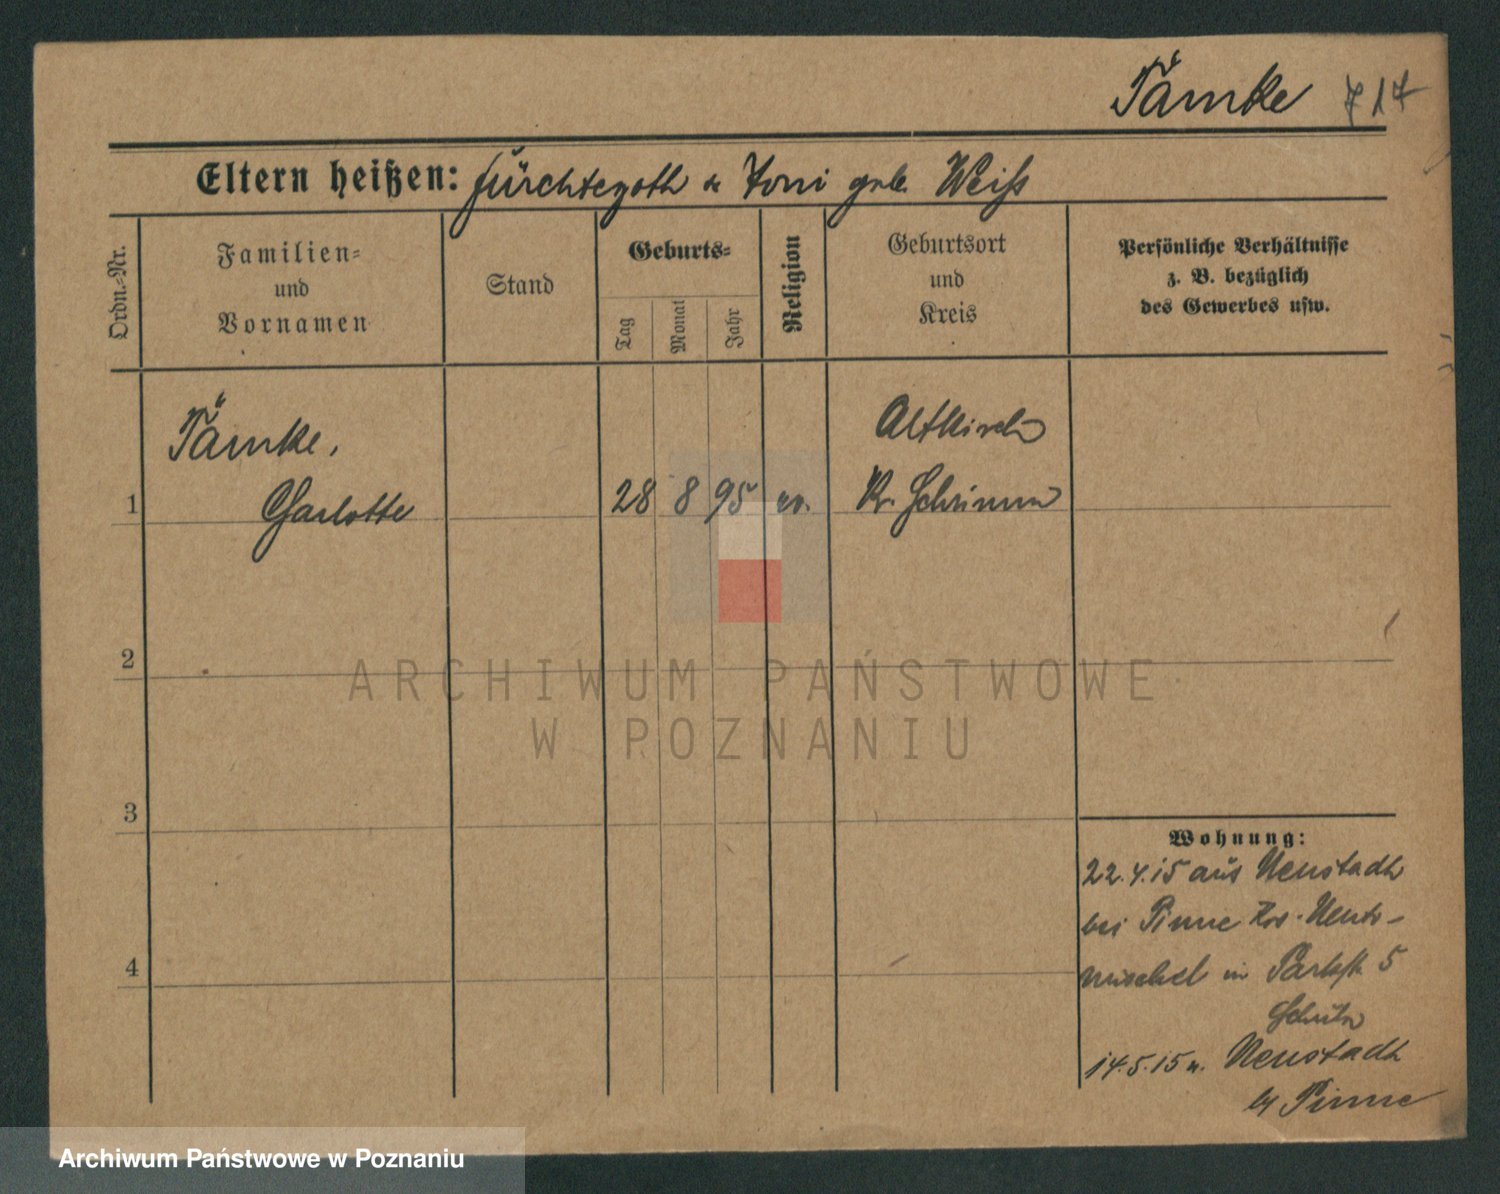 Tämke 717
Eltern heißen: Fürchtegott u Toni geb. Weiß
Ordn.-Nr.
Familien-
und
Vornamen
Stand
Geburts-
Tag
Monat
Jahr
Religion
Geburtsort
und
Kreis
Persönliche Verhältnisse
z. B. bezüglich
des Gewerbes usw.
Tämke,
Altkirch
1 Charlotte 28 8 95 ev. Kr. Schrimm
2
ARCHIWUM PAŃSTWOWE
W POZNANIU
3
Wohnung:
22.4.15 aus Neustadt
bei Pinne Krs. Neuto-
mischel in Parkstr 5
14.5.15 n. Neustadt
4
b/ Pinne
Archiwum Państwowe w Poznaniu